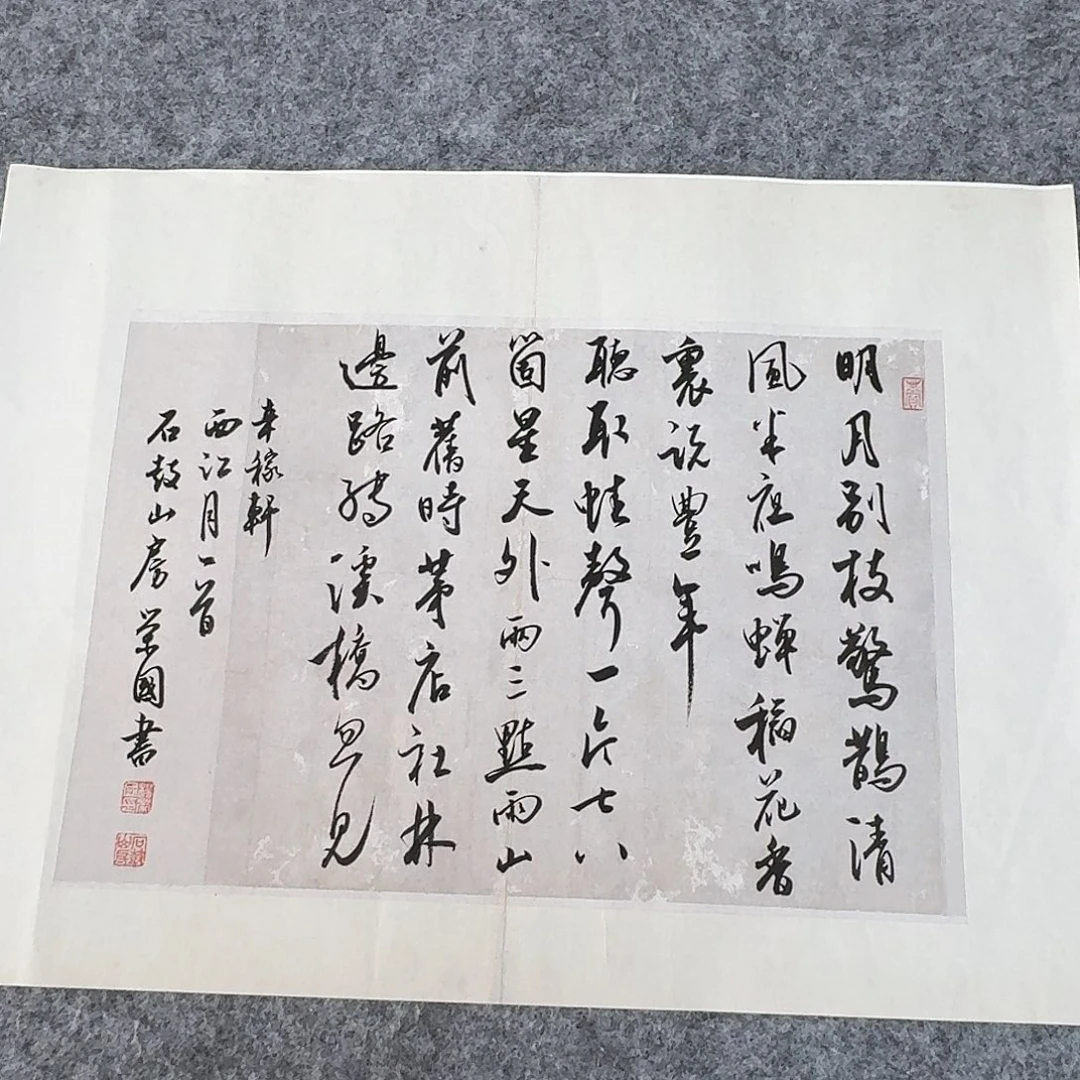 明月別枝驚鵲清
風半夜鳴蟬稻花香
裏說豐年
聽取蛙聲一片七八
箇星天外兩三點雨山
前舊時茅店社林
邊路轉溪橋忽見
辛稼軒
西江月一首
石鼓山房榮國書